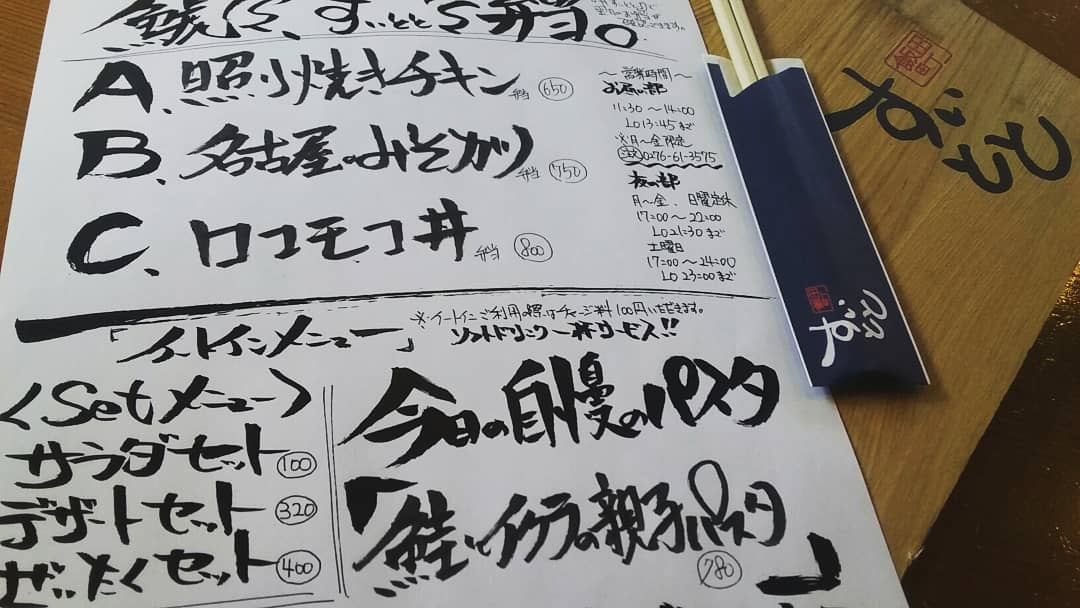 すいとと
弁当。
A、照り焼きチキン弁当 650
B、名古屋のみそかつ弁当 750
C、ロコモコ丼弁当 800
～営業時間～
お昼の部
11:30～14:00
LO13:45まで
※月～金限定
0276-61-3575
夜の部
月～金、日曜定休
17:00～22:00
LO21:30まで
土曜日
17:00～24:00
LO23:00まで
※イートインご利用の際はチャージ料100円いただきます。
「イートインメニュー」
ソフトドリンク一杯サービス!!
<Setメニュー>
サラダセット 100
デザートセット 320
ぜいたくセット 400
今日の自慢のパスタ
「鮭とイクラの親子パスタ」
780